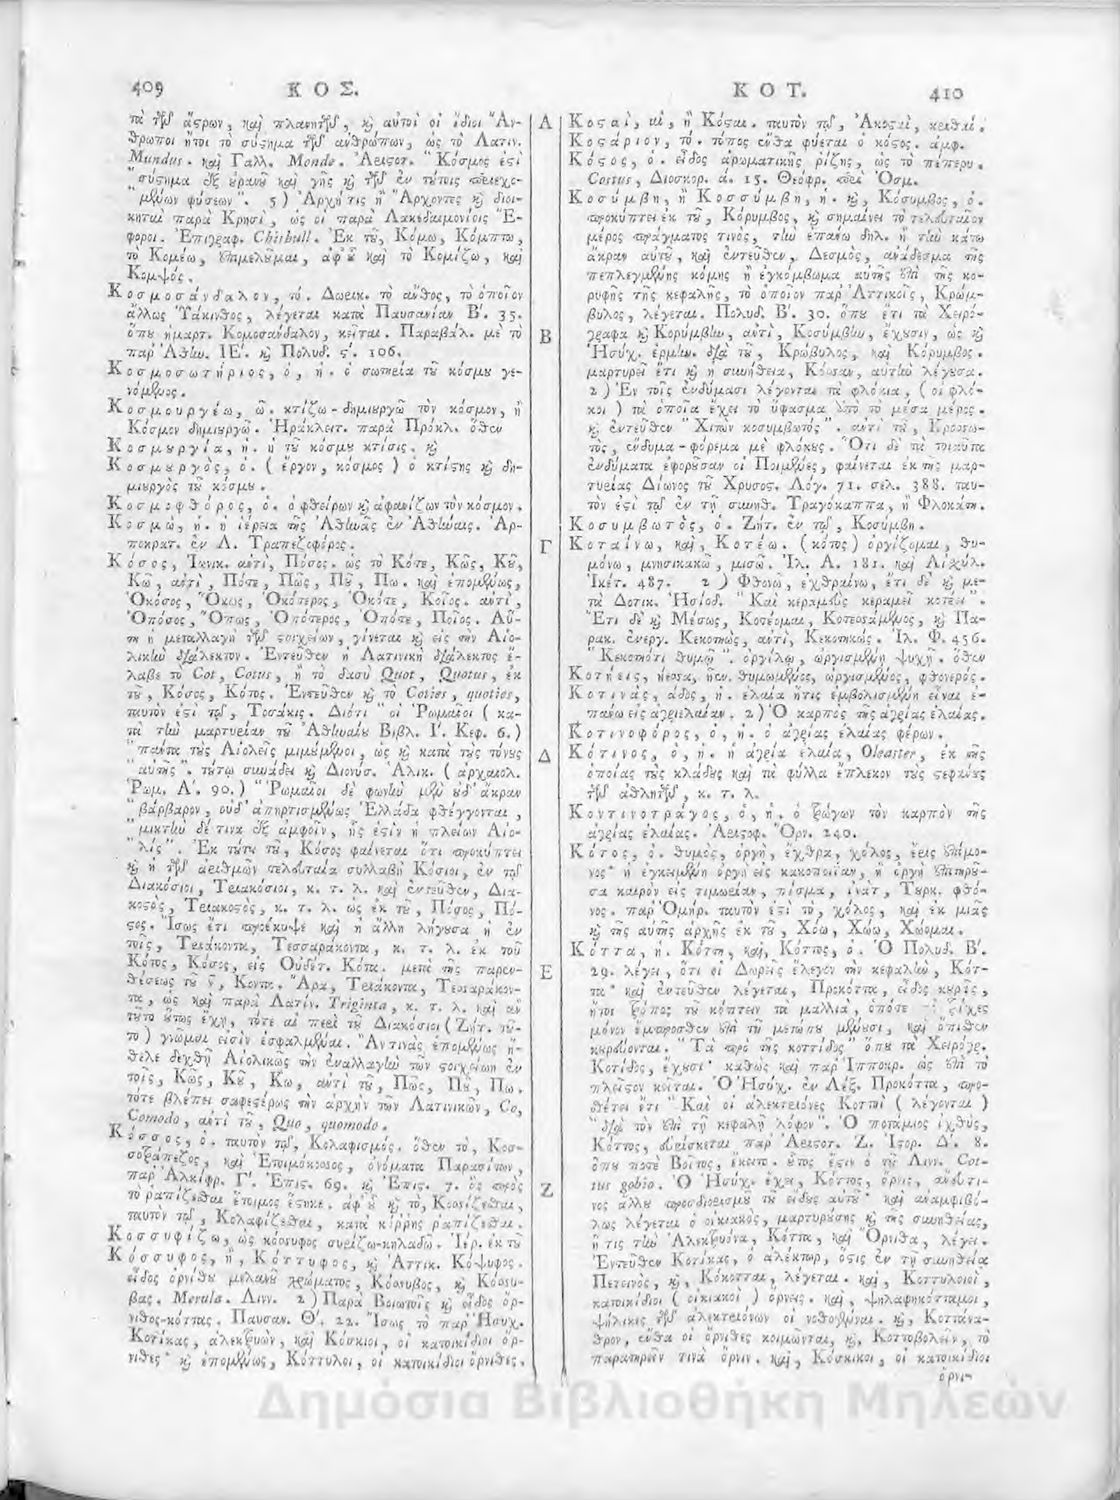 409 ΚΟΣ.
τὰ τῶν ἄστρων, καὶ πλανητῶν, καὶ αὐτοὶ οἱ ἴδιοι Ἄν-
θρωποι ἤτοι τὸ σύστημα τῶν ἀνθρώπων, ὡς τὸ Λατιν.
Mundus. καὶ Γαλλ. Monde. Ἀριστοτ. "Κόσμος ἐστὶ
"σύστημα ἐξ οὐρανοῦ καὶ γῆς καὶ τῶν ἐν τούτοις περιεχο-
"μένων φύσεων". 5) Ἀρχή τις ἢ Ἄρχοντες καὶ διοι-
κηταὶ παρὰ Κρησὶ, ὡς οἱ παρὰ Λακεδαιμονίοις Ἔ-
φοροι. Ἐπιγραφ. Chishull. Ἐκ τοῦ, Κόμω, Κόμπτω,
τὸ Κομέω, ἐπιμελοῦμαι, ἀφ' οὗ καὶ τὸ Κομίζω, καὶ
Κομψός.
Κοσμοσάνδαλον, τό. Δωρικ. τὸ ἄνθος, τὸ ὁποῖον
ἄλλως Ὑάκινθος, λέγεται κατὰ Παυσανίαν Β΄. 35.
ὅπου ἡμαρτ. Κομοσάνδαλον, κεῖται. Παραβαλ. μὲ τὸ
παρ' Ἀθην. ΙΕ΄. καὶ Πολυδ. ς΄. 106.
Κοσμοσωτήριος, ὁ, ἡ. ὁ σωτηρία τοῦ κόσμου γε-
νόμενος.
Κοσμουργέω, ῶ. κτίζω-δημιουργῶ τὸν κόσμον, ἢ
Κόσμον δημιουργῶ. Ἡράκλειτ. παρὰ Πρόκλ. ὅθεν
Κοσμουργία, ἡ. ἡ τοῦ κόσμου κτίσις. καὶ
Κοσμουργὸς, ὁ. (ἔργον, κόσμος) ὁ κτίστης καὶ δη-
μιουργὸς τοῦ κόσμου.
Κοσμοφθόρος, ὁ. ὁ φθείρων καὶ ἀφανίζων τὸν κόσμον.
Κοσμὼ, ἡ. ἡ ἱέρεια τῆς Ἀθηνᾶς ἐν Ἀθήναις. Ἁρ-
ποκρατ. ἐν Λ. Τραπεζοφόρος.
Κόσος, Ἰωνικ. ἀντὶ, Πόσος. ὡς τὸ Κότε, Κῶς, Κοῦ,
Κῶ, ἀντὶ, Πότε, Πῶς, Ποῦ, Πω. καὶ ἑπομένως,
Ὁκόσος, Ὅκως, Ὁκότερος, Ὁκότε, Κοῖος. ἀντὶ,
Ὁπόσος, Ὅπως, Ὁπότερος, Ὁπότε, Ποῖος. Αὕ-
τη ἡ μεταλλαγὴ τῶν στοιχείων, γίνεται καὶ εἰς τὴν Αἰο-
λικὴν διάλεκτον. Ἐντεῦθεν ἡ Λατινικὴ διάλεκτος ἔ-
λαβε τὸ Cot, Cotus, ἢ τὸ δασὺ Quot, Quotus, ἐκ
τοῦ, Κόσος, Κότος. Ἐντεῦθεν καὶ τὸ Coties, quoties,
ταυτὸν ἐστὶ τῷ, Τοσάκις. Διότι "οἱ Ῥωμαῖοι (κα-
τὰ τὴν μαρτυρίαν τοῦ Ἀθηναίου Βιβλ. Ι΄. Κεφ. 6.)
"πάντα τοὺς Αἰολεῖς μιμούμενοι, ὡς καὶ κατὰ τοὺς τόνους
"αὐτῆς". τούτῳ συνᾴδει καὶ Διονύσ. Ἁλικ. (ἀρχαιολ.
Ῥωμ. Α΄. 90.) "Ῥωμαῖοι δὲ φωνὴν μὲν οὐδ' ἄκραν
"βάρβαρον, οὐδ' ἀπηρτισμένως Ἑλλάδα φθέγγονται,
"μικτὴν δέ τινα ἐξ ἀμφοῖν, ἧς ἐστὶν ἡ πλείων Αἰο-
"λίς". Ἐκ τούτου τοῦ, Κόσος φαίνεται ὅτι προκύπτει
καὶ ἡ τῶν ἀριθμῶν τελευταία συλλαβὴ Κόσιοι, ἐν τῷ
Διακόσιοι, Τριακόσιοι, κ. τ. λ. καὶ ἐντεῦθεν, Δια-
κοστὸς, Τριακοστὸς, κ. τ. λ. ὡς ἐκ τοῦ, Πόσος, Πό-
στος. Ἴσως ἔτι προέκυψε καὶ ἡ ἄλλη λήγουσα ἡ ἐν
τοῖς, Τριάκοντα, Τεσσαράκοντα, κ. τ. λ. ἐκ τοῦ
Κότος, Κόσος, εἰς Οὐδέτ. Κότα. μετὰ τῆς παρεν-
θέσεως τοῦ ν, Κοντα. Ἄρα, Τριάκοντα, Τεσσαράκον-
τα, ὡς καὶ παρὰ Λατίν. Triginta, κ. τ. λ. καὶ ἂν
τοῦτο οὕτως ἔχῃ, τότε αἱ περὶ τοῦ Διακόσιοι (Ζήτ. τοῦ-
το) γνῶμαι εἰσὶν ἐσφαλμέναι. Ἂν τινὰς ἑπομένως ἤ-
θελε δεχθῆ Αἰολικῶς τὴν ἐναλλαγὴν τῶν στοιχείων ἐν
τοῖς, Κῶς, Κοῦ, Κω, ἀντὶ τοῦ, Πῶς, Ποῦ, Πω.
τότε βλέπει σαφεστέρως τὴν ἀρχὴν τῶν Λατινικῶν, Co,
Comodo, ἀντὶ τοῦ, Quo, quomodo.
Κόσσος, ὁ. ταυτὸν τῷ, Κολαφισμός. ὅθεν τὸ, Κοσ-
σοτράπεζος, καὶ Ἑτοιμόκοσσος, ὀνόματα Παρασίτων,
παρ' Ἀλκίφρ. Γ΄. Ἐπις. 69. καὶ Ἐπις. 7. ὃς πρὸς
τὸ ῥαπίζεσθαι ἕτοιμος ἕστηκε. ἀφ' οὗ καὶ τὸ, Κοσσίζεσθαι,
ταυτὸν τῷ, Κολαφίζεσθαι, κατὰ κόρρης ῥαπίζεσθαι.
Κοσσυφίζω, ὡς κόσσυφος συρίζω-κηλαδῶ. Ἱερ. ἐκ τοῦ
Κόσσυφος, ἢ, Κόττυφος, καὶ Ἀττικ. Κόψυφος.
εἶδος ὀρνίθου μέλανος χρώματος, Κόσσυβος, καὶ Κόσσυ-
βας. Merula. Λινν. 2) Παρὰ Βοιωτοῖς καὶ εἶδος ὄρ-
νιθος-κόττας. Παυσαν. Θ΄. 22. Ἴσως τὸ παρ' Ἡσυχ.
Κοτίκας, ἀλεκτρυὼν, καὶ Κόσκιοι, οἱ κατοικίδιοι ὄρ-
νιθες· καὶ ἑπομένως, Κόττυλοι, οἱ κατοικίδιοι ὄρνιθες.
Α
Β
Γ
Δ
Ε
Ζ
ΚΟΤ. 410
Κοσταὶ, αἱ, ἢ Κόσται. ταυτὸν τῷ, Ἀκοσταὶ, κριθαί.
Κοστάριον, τό. τόπος ἔνθα φύεται ὁ κόστος. ἀμφ.
Κόστος, ὁ. εἶδος ἀρωματικῆς ῥίζης, ὡς τὸ πέπερυ.
Costus, Διοσκορ. ά. 15. Θεόφρ. περὶ Ὀσμ.
Κοσύμβη, ἢ Κοσσύμβη, ἡ. καὶ, Κόσυμβος, ὁ.
προκύπτει ἐκ τοῦ, Κόρυμβος, καὶ σημαίνει τὸ τελευταῖον
μέρος πράγματος τινὸς, τὴν ἐπάνω δηλ. ἢ τὴν κάτω
ἄκραν αὐτοῦ, καὶ ἐντεῦθεν, Δεσμὸς, ἀνάδεσμα τῆς
πεπλεγμένης κόμης ἢ ἐγκόμβωμα αὐτῆς ἐπὶ τῆς κο-
ρυφῆς τῆς κεφαλῆς, τὸ ὁποῖον παρ' Ἀττικοῖς, Κρώμ-
βυλος, λέγεται. Πολυδ. Β΄. 30. ὅπου ἔτι τὰ Χειρό-
γραφα καὶ Κορύμβην, ἀντὶ, Κοσύμβην, ἔχουσιν, ὡς καὶ
Ἡσύχ. ἑρμην. διὰ τοῦ, Κρώβυλος, καὶ Κόρυμβος.
μαρτυρεῖ ἔτι καὶ ἡ συνήθεια, Κόσαν, αὐτὴν λέγουσα.
2) Ἐν τοῖς ἐνδύμασι λέγονται τὰ φλόκια, (οἱ φλό-
κοι) τὰ ὁποῖα ἔχει τὸ ὕφασμα ἀπὸ τὸ μέσα μέρος.
καὶ ἐντεῦθεν "Χιτὼν κοσυμβωτὸς". ἀντὶ τοῦ, Κροσσω-
τὸς, ἔνδυμα-φόρεμα μὲ φλόκους. Ὅτι δὲ τὰ τοιαῦτα
ἐνδύματα ἐφοροῦσαν οἱ Ποιμένες, φαίνεται ἐκ τῆς μαρ-
τυρίας Δίωνος τοῦ Χρυσος. Λόγ. 71. σελ. 388. ταυ-
τὸν ἐστὶ τῷ ἐν τῇ συνηθ. Τραγόκαππα, ἢ Φλοκάτη.
Κοσυμβωτὸς, ὁ. Ζήτ. ἐν τῷ, Κοσύμβη.
Κοταίνω, καὶ, Κοτέω. (κότος) ὀργίζομαι, θυ-
μόνω, μνησικακῶ, μισῶ. Ἰλ. Α. 181. καὶ Αἰσχύλ.
Ἱκέτ. 487. 2) Φθονῶ, ἐχθραίνω, ἔτι δὲ καὶ με-
τὰ Δοτικ. Ἡσίοδ. "Καὶ κεραμεὺς κεραμεῖ κοτέει".
Ἔτι δὲ καὶ Μέσως, Κοτέομαι, Κοτεσσάμενος, καὶ Πα-
ρακ. ἐνεργ. Κεκοτηὼς, ἀντὶ, Κεκοτηκώς. Ἰλ. Φ. 456.
"Κεκοτηότι θυμῷ". ὀργίλῳ, ὠργισμένῃ ψυχῇ. ὅθεν
Κοτήεις, ήεσσα, ῆεν. θυμωμένος, ὠργισμένος, φθονερός.
Κοτινὰς, άδος, ἡ. ἐλαία ἥτις ἐμβολισμένη εἶναι ἐ-
πάνω εἰς ἀγριελαίαν. 2) Ὁ καρπὸς τῆς ἀγρίας ἐλαίας.
Κοτινοφόρος, ὁ, ἡ. ὁ ἀγρίας ἐλαίας φέρων.
Κότινος, ὁ, ἡ. ἡ ἀγρία ἐλαία, Oleaster, ἐκ τῆς
ὁποίας τοὺς κλάδους καὶ τὰ φύλλα ἔπλεκον τοὺς στεφάνους
τῶν ἀθλητῶν, κ. τ. λ.
Κοντινοτράγος, ὁ, ἡ. ὁ τρώγων τὸν καρπὸν τῆς
ἀγρίας ἐλαίας. Ἀριστοφ. Ὄρν. 240.
Κότος, ὁ. θυμὸς, ὀργὴ, ἔχθρα, χόλος, ἔρις ἐπίμο-
νος· ἡ ἐγκειμένη ὀργὴ εἰς κακοποιΐαν, ἡ ὀργὴ ἐπιτηροῦ-
σα καιρὸν εἰς τιμωρίαν, πίσμα, ἰνάτ, Τουρκ. φθό-
νος. παρ' Ὁμήρ. ταυτὸν ἐστὶ τὸ, χόλος, καὶ ἐκ μιᾶς
καὶ τῆς αὐτῆς ἀρχῆς ἐκ τοῦ, Χόω, Χώω, Χώομαι.
Κόττα, ἡ. Κόττη, καὶ, Κόττος, ὁ. Ὁ Πολυδ. Β΄.
29. λέγει, ὅτι οἱ Δωριεῖς ἔλεγον τὴν κεφαλὴν, Κότ-
τα· καὶ ἐντεῦθεν λέγεται, Προκόττα, εἶδος κουρᾶς,
ἤτοι τρόπος τοῦ κόπτειν τὰ μαλλιὰ, ὁπότε τρίχες
μόνον ἔμπροσθεν ἐπὶ τοῦ μετώπου μένουσι, καὶ ὄπισθεν
κουρεύονται. "Τὰ πρὸ τῆς κοττίδος" ὅπου τὰ Χειρόγρ.
Κοτίδος, ἔχουσι· καθὼς καὶ παρ' Ἱπποκρ. ὡς ἐπὶ τὸ
πλεῖστον κεῖται. Ὁ Ἡσύχ. ἐν Λέξ. Προκόττα, προσ-
θέτει ὅτι "Καὶ οἱ ἀλεκτρυόνες Κοττοὶ (λέγονται)
"διὰ τὸν ἐπὶ τῇ κεφαλῇ λόφον". Ὁ ποτάμιος ἰχθὺς,
Κόττος, εὑρίσκεται παρ' Ἀριστοτ. Ζ. Ἱστορ. Δ΄. 8.
ὅπου ποτὲ Βοῖτος, ἔκειτο. οὗτος ἐστὶν ὁ τοῦ Λινν. Cot-
tus gobio. Ὁ Ἡσύχ. ἔχει, Κόττος, ὄρνις, ἀνευ τι-
νὸς ἄλλου προσδιορισμοῦ τοῦ εἴδους αὐτοῦ· καὶ ἀναμφιβό-
λως λέγεται ὁ οἰκιακὸς, μαρτυρούσης καὶ τῆς συνηθείας,
ἥτις τὴν Ἀλεκτρυόνα, Κόττα, καὶ Ὄρνιθα, λέγει.
Ἐντεῦθεν Κοτίκας, ὁ ἀλέκτωρ, ὅστις ἐν τῇ συνηθείᾳ
Πετεινὸς, καὶ, Κόκοτας, λέγεται. καὶ, Κοττυλοιοὶ,
κατοικίδιοι (οἰκιακοὶ) ὄρνεις. καὶ, ψηλαφηκόττομοι,
ψῆλικες τῶν ἀλεκτρυόνων οἱ νοθογέννοι. καὶ, Κοττάνα-
θρον, ἔνθα οἱ ὄρνιθες κοιμῶνται, καὶ, Κοττοβολεῖν, τὸ
παρατηρεῖν τινὰ ὄρνιν. καὶ, Κόσκικοι, οἱ κατοικίδιοι
ὄρνι-
Δημόσια Βιβλιοθήκη Μηλεών